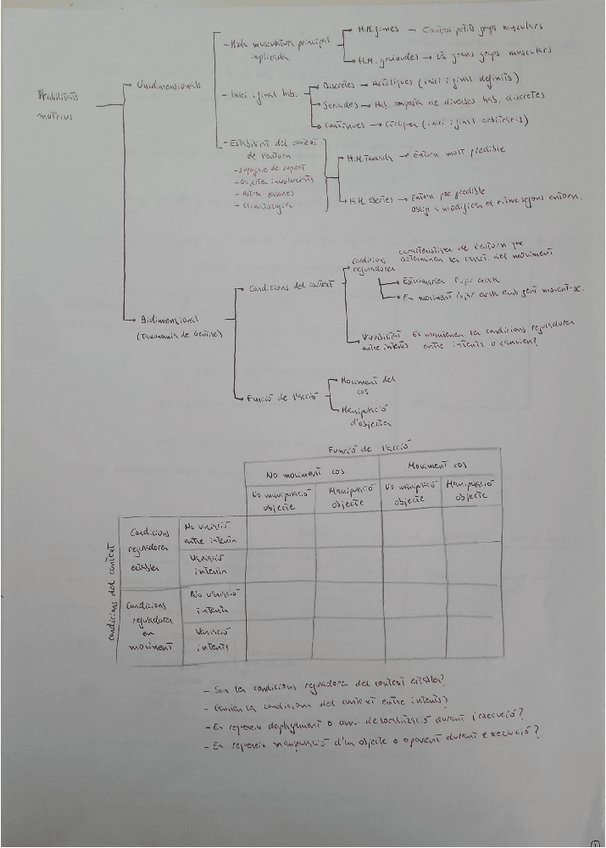 Habilitats
motrius
Unidimensionals
- Mida musculatura principal
implicada
H.M. fines → Control petits grups musculars
H.M. gruixudes → Ús grans grups musculars
- Inici i final hab.
Discretes → Acícliques (inici i final definits)
Seriades → Hab. composta de diverses hab. discretes
Contínues → Cícliques (inici i final arbitraris)
- Estabilitat del context
de l'entorn
- Superfície de suport
- Objectes involucrats
- Altres persones
- Climatologia
H.M. tancada → Entorn molt predible
H.M. obertes → Entorn poc predible
Obliga a modificar el mitre segons entorn.
Bidimensional
(Taxonomia de Gentile)
Condicions del context
Condicions
reguladores
característiques de l'entorn que
determinen les caract. del moviment
Estacionàries Pujar escala
En moviment Pujar escala amb gent movent-se.
Variabilitat
entre intents
Es mantenen les condicions reguladores
entre intents o canvien?
Funció de l'acció
Moviment del
cos
Manipulació
d'objectes
Funció de l'acció
No moviment cos
Moviment cos
No manipulació
objecte
Manipulació
objecte
No manipulació
objecte
Manipulació
objecte
Condicions del context
Condicions
reguladores
estables
No variació
entre intents
Variació
intents
Condicions
reguladores
en
moviment
No variació
intents
Variació
intents
- Són les condicions reguladores del context estables?
- Canvien les condicions del context entre intents?
- Es requereix desplaçament o canvi de localització durant l'execució?
- Es requereix manipulació d'un objecte o oponent durant execució?
1